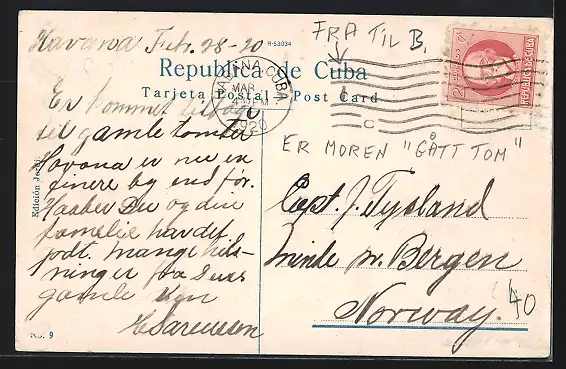 Havana Feb. 28-20
R-53034
FRA TIL B.
Republica de Cuba
Tarjeta Postal Post Card
HABANA CUBA
MAR 1
4 PM
1920
REPUBLICA DE CUBA
C
ER MOREN "GÅTT TOM"
Er kommet tilbage
til gamle tomter
Havana er nu en
finere by end før.
Haaber Du og din
familie har det
godt. mange hils-
ninger fra Deres
gamle Ven
Capt. J. Tysland
Minde pr. Bergen
Norway.
40
Edición Jordi
No. 9